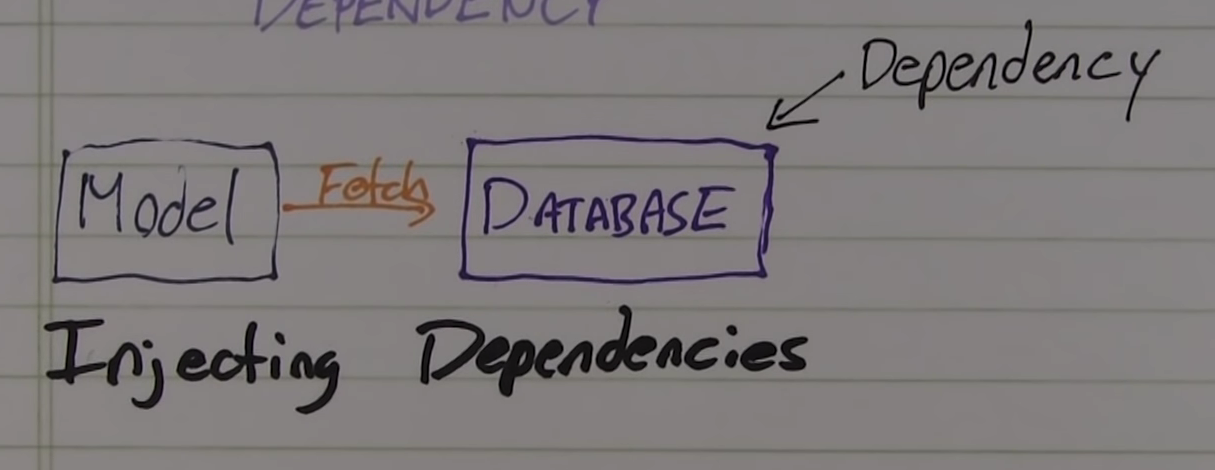 DEPENDENCY
Dependency
Model Fetch DATABASE
Injecting Dependencies